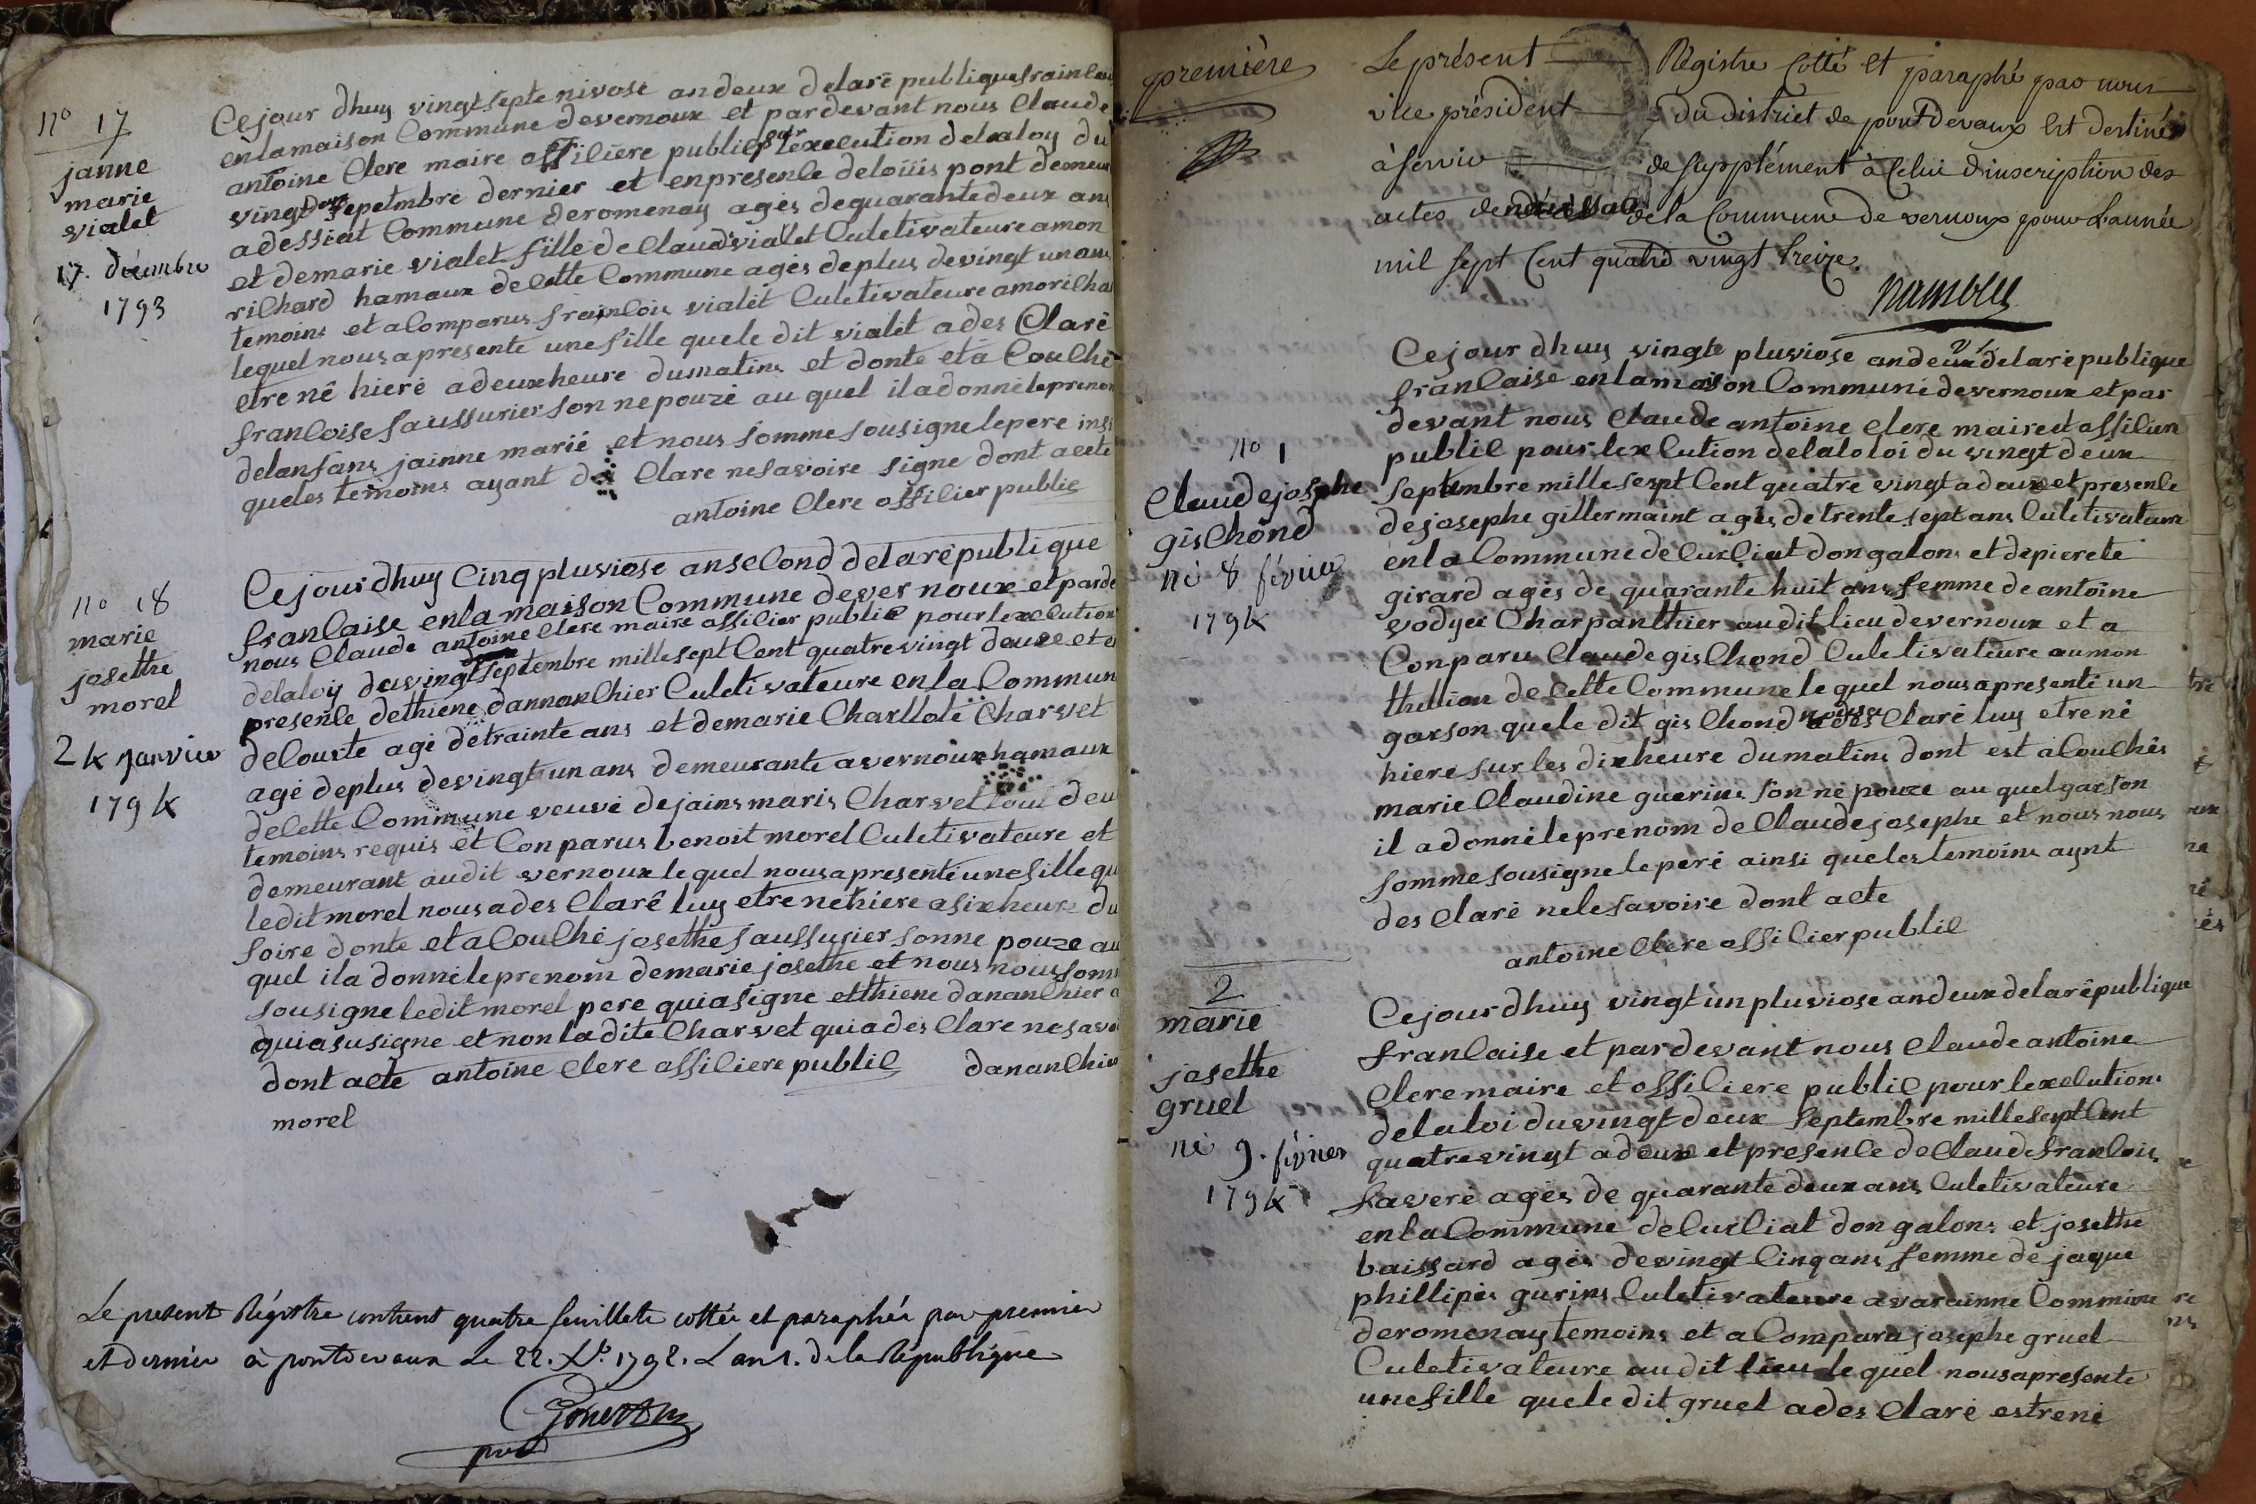 n° 17
janne
marie
vialet
17. décembre
1793
Cejour dhuy vingt septe nivose an deux delaré publique frainlai
enlamaison Commune devernoux et pardevant nous Claude
antoine Clere maire offiliere publie pour lexecution delaloy du
vingt deux sepetmbre dernier et enpresenle deloüis pont demeur
adessiat Commune deromenay agés dequarante deux ans
et demarie vialet fille de Claud vialet Culetivateure amon
rilhard hamaux delette Commune agés deplus devingt un ans
temoins et aComparus frainlois vialet Culetivateure amorilha
lequel nous a presente une fille quele dit vialet a des Claré
etre né hieré adeux heure dumatins et donte et a Couché
franloise saussurier son nepouzé au quel il a donné leprenon
delanfans jainne marié et nous somme sousigne lepere insi
queles temoins ayant des Clare nesavoire signe dont alete
antoine Clere offilier public
n° 18
marie
josethe
morel
24 janvier
1794
Cejourdhuy Cinq pluviose anselond delarépublique
franlaise enlamaison Commune devernoux et parde
nous Claude antoine Clere maire offilier publie pour lexelution
delaloy duvingt deux septembre millesept Cent quatrevingt deuxe et e
presenle dethiene dannanlhier Culetivateure enla Commun
delourte agé detrainte ans et demarie Charllote Charvet
agé deplus devingt un ans demeurante avernoux hamaux
delette Commune veuve dejains maris Charvet tout deu
temoins requis et Conparus benoit morel Culetivateure et
demeurant audit vernoux lequel nous a presenté une fille qu
ledit morel nous a des Claré luy etre né hiere asixheure du
soire donte et a Couché josethe saussurier sonne pouze au
quel il a donné leprenom demarie josethe et nous nous som
sousigne ledit morel pere quiasigne etthiene dananlhier
quiasusigne et non ladite Charvet quia des Clare nesavoi
dont alete antoine Clere offiliere publie dananlhier
morel
Le present Régistre contient quatre feuillets cottés et paraphés par premier
et dernier à pontdevaux Le 22. Xb. 1792. L'an 1. de la République
première
Le présent Régistre Cotté et paraphé par nous
vice président du district de pont devaux Est destiné
à servir de supplément à Celui d'inscription des
actes de naissances de la Commune de vernoux pour L'année
mil sept Cent quatre vingt treize.
n° 1
Claudejosphe
gisChond
né 8 février
1794
Cejour dhuy vingte pluviose andeux delarépublique
franlaise enlamaison Commune devernoux et par
devant nous Claude antoine Clere mairedt offilier
publie pour lexlution delaloloi du vingt deux
septembre mille sept Cent quatre vingt a deux et presenle
dejosephe gillermaint agés detrente sept ans Culetivateure
enla Commune de Curliat dongalon et depierete
girard agés de quarante huit ans femme de antoine
vodyer Charpanthier audit lieu devernoux et a
Conparu Claude gisChond Culetivateure aumon
thillion de lette Commune lequel nous a presenté un
garson quele dit gisChond nous a des Claré luy etre né
hiere sur les dix heure du matins dont est a Couchés
marie Claudine guerins son né pouze au quel garson
il a donné leprenom de Claudejosephe et nous nous
somme sousigne leperé ainsi que les temoins aynt
des Claré nelesavoire dont alete
antoine Clere offilier publie
2
marie
josethe
gruel
né 9. février
1794
Cejourdhuy vingt un pluviose andeux delarépublique
franlaise et pardevant nous Claude antoine
Clere maire et offiliere publie pour lexelution
delaloi duvingt deux septembre mille sept Cent
quatrevingt a deux et presenle de Claude franlois
faveré agés de quarante deux ans Culetivateure
enla Commune de Curliat don galons et josethe
baissard agés devingt Cinq ans femme de jaque
phillipés gurins Culetivateure a varainne Commune
deromenay temoins et a Comparu josephe gruel
Culetivateure au dit lieu lequel nous a presente
une fille quele dit gruel a des Claré estrené